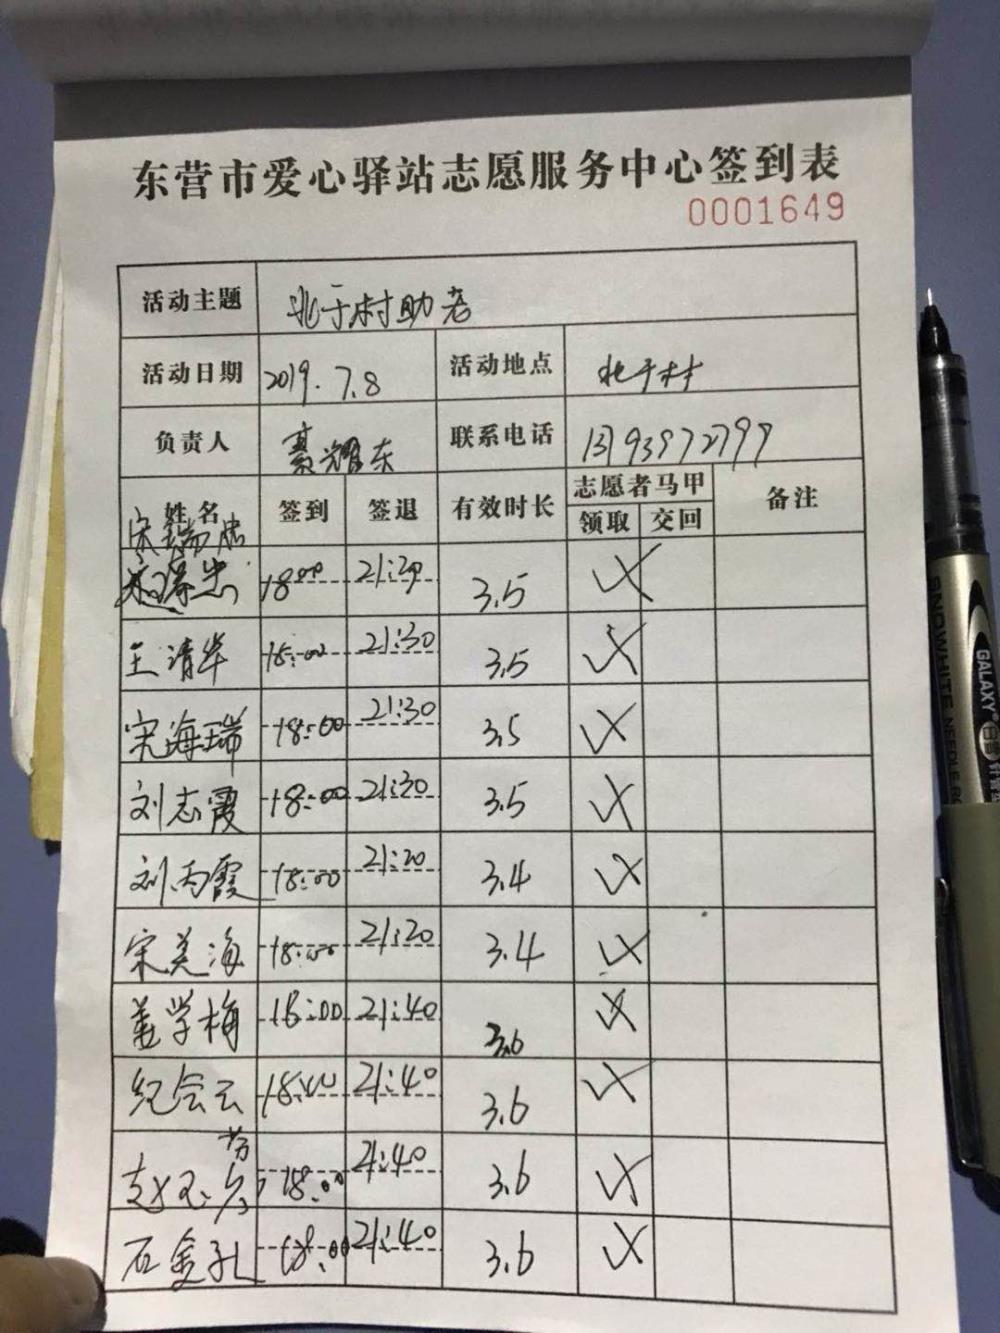 东营市爱心驿站志愿服务中心签到表
0001649
活动主题 北于村助老
活动日期 2019.7.8 活动地点 北于村
负责人 綦耀东 联系电话 13793972799
姓名 签到 签退 有效时长 志愿者马甲 备注
领取 交回
宋瑞忠
18:00 21:30 3.5 √
王清华 18:00 21:30 3.5 √
宋海瑞 18:00 21:30 3.5 √
刘志霞 18:00 21:30 3.5 √
刘丙霞 18:00 21:20 3.4 √
宋美海 18:00 21:20 3.4 √
姜学梅 18:00 21:40 3.6 √
纪会云 18:00 21:40 3.6 √
赵玉芳 18:00 21:40 3.6 √
石金孔 18:00 21:40 3.6 √
GALAXY
SNOWWHITE NEEDLE